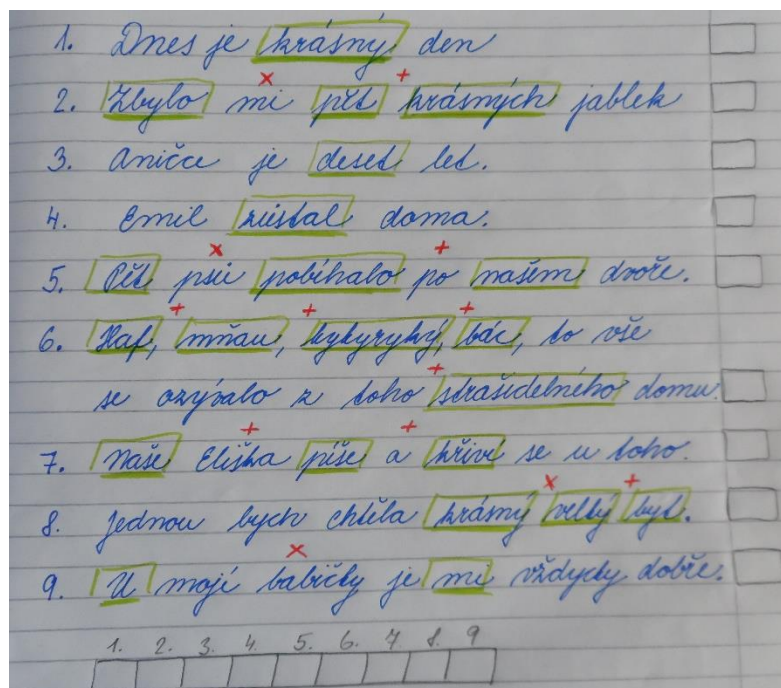 1. Dnes je krásný den
× +
2. Zbylo mi pět krásných jablek
3. Aničce je deset let.
4. Emil zůstal doma.
× +
5. Pět psů pobíhalo po našem dvoře.
+ + +
6. Haf, mňau, kykyryký, bác, to vše
+
se ozývalo z toho strašidelného domu.
+ +
7. Naše Eliška píše a křiví se u toho.
× +
8. Jednou bych chtěla krásný velký byt.
×
9. U mojí babičky je mi vždycky dobře.
1. 2. 3. 4. 5. 6. 7. 8. 9